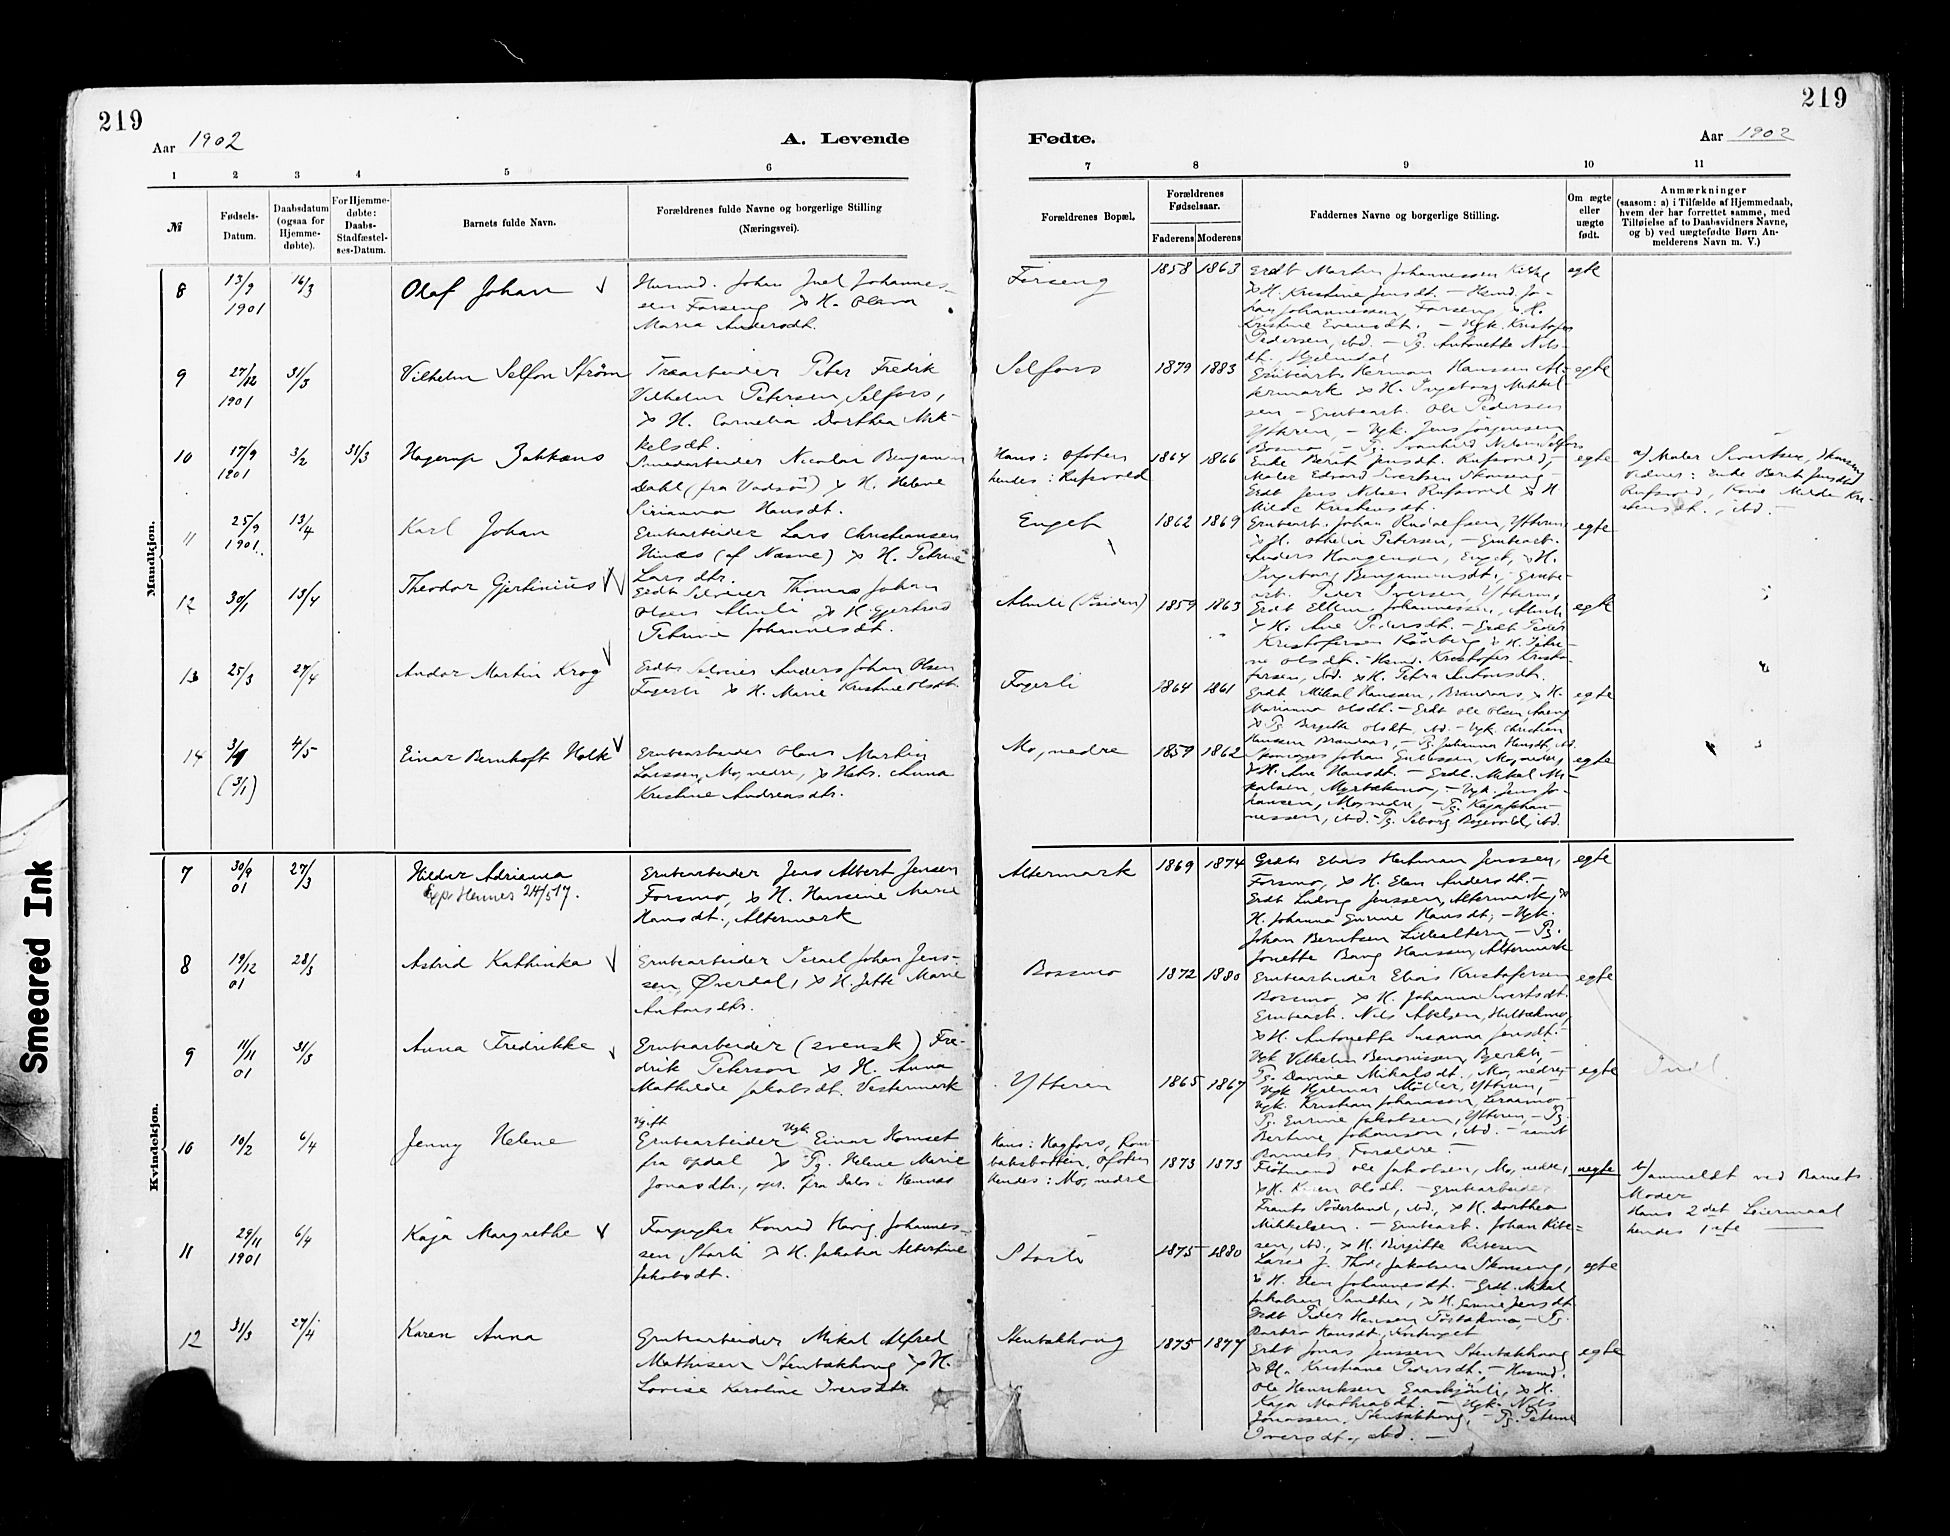 219
Aar 1902
A. Levende
1 2 3 4 5 6
№
Fødsels-Datum.
Daabsdatum (ogsaa for Hjemme-døbte).
For Hjemme-døbte: Daabs-Stadfæstel-ses-Datum.
Barnets fulde Navn.
Forældrenes fulde Navne og borgerlige Stilling
(Næringsvei).
Mandkjøn.
8 13/9 1901 16/3 Olaf Johan
Husmd. Johan Juel Johannes-
sen Forseng & H. Oliva
Maria Andersdt.
9 27/12 1901 31/3 Vilhelm Selfon Strøm
Træarbeider Peter Fredrik
Vilhelm Petersen, Selfors,
& H. Cornelia Dorthea Mik-
kelsdt.
10 17/9 1901 3/2 31/3 Hagerup Bakkens
Smedarbeider Nicolai Benjamin
Dahl (fra Vadsö) & H. Helene
Sirianna Hansdt.
11 25/9 1901. 13/4 Karl Johan
Grubearbeider Lars Christiansen
Hinæs (af Næsne) & H. Petrine
Larsdtr.
12 30/1 13/4 Theodor Gjertinius
Thomas Johan
Olsen Almli & H. Gjertrud
Petrine Johannesdt.
13 25/3 27/4 Andor Martin Krog
Anders Johan Olsen
Fagerli & H. Marie Kristine Olsdt.
14 (3/1) 4/5 Einar Bernhoft Holk
Grubearbeider Olaus Martin
Larssen, Mo, nedre, & Hstr. Anna
Kristine Andreasdtr.
Kvindekjøn.
7 30/9 01 27/3 Hildur Adrianna
24/5 17.
Grubearbeider Jens Albert Jensen
Forsmo, & H. Hansine Marie
Hansdt., Altermark
8 19/12 01 28/3 Astrid Kathinka
Grubearbeider Israel Johan Jens-
sen, Øverdal, & H. Jette Marie
Antonsdtr.
9 11/11 01 31/3 Anna Fredrikke
Grubearbeider (svensk) Fre-
drik Peterson & H. Anna
Mathilde Jakobsdt. Vestermark
10 10/2 6/4 Jenny Helene
Ugift
Grubearbeider Einar Hornset
fra Opdal & Pg. Helene Marie
Jonasdtr.,
11 29/11 1901 6/4 Kaja Margrethe
Forpagter Konrad Havig Johannes-
sen Storli & H. Jakobia Albertine
Jakobsdt.
12 31/3 27/4 Karen Anna
Grubearbeider Mikal Alfred
Mathisen Stenbækhaug & H.
Lovise Karoline Iversdtr.
219
Fødte.
Aar 1902
7 8 9 10 11
Forældrenes Bopæl.
Forældrenes Fødselsaar.
Faderens Moderens
Faddernes Navne og borgerlige Stilling.
Om ægte eller uægte født.
Anmærkninger
(saasom: a) i Tilfælde af Hjemmedaab, hvem der har forrettet samme, med Tilføielse af to Daabsvidners Navne, og b) ved uægtefødte Børn Anmelderens Navn m. V.)
Forseng 1858 1863
Erdt Martin Johannessen
& H. Kristine Jensdt. — Husmd. Jo-
han Johannessen, Forseng, & H.
Kristine Evensdt. — Ugk. Kristofer
Pedersen, ibd. — Pg. Antonette Nils-
dt., Hjelmdal
egte
Selfors 1879 1883
Grubearb. Herman Hanssen Al-
termark & H. Ingeborg Mikkel-
sen — Grubearb. Ole Pedersen
Ytteren, — Ugk. Jens Jørgensen
Bosmo
egte
Hans: Ofoten
hendes: Rufsvold 1864 1866
Enke Berit Jensdt. Rufsvold, —
Maler Edvard Sivertsen Skonseng —
Erdt Jens Nilsen Rufsvold & H
Milde Kristensdt.
egte
a) Maler Sivertsen, Skonseng
Vidner: Enke Berit Jensdt
Rufsvold, Kone Milde Kri-
stensdt., ibd. —
Enget 1862 1869
Grubearb. Johan Rudolfsen, Ytteren
& H. Othelia Petersen, — Grubearb.
Anders Haagensen, Enget, & H.
Ingeborg Benjaminsdt., Grube-
arb. Peder Iversen, Ytteren,
egte
Almli 1859 1863
Erdt Ellen Johannessen, Almli
& H. Ane Pedersdt. — Erdt Peder
Kristofersen Rösberg & H. Petri-
ne Olsdt. — Husmd. Kristofer Kristo-
fersen, ibd. & H. Petra Antonsdt.
egte
Fagerli 1864 1861
Erdt Mikal Hanssen, Brandaas, & H.
Marianna Olsdt. — Erdt Ole Olsen,
& Pg. Bergitte Olsdt, ibd. — Ugk. Christian
Hansen Brandaas, — Pg. Johanna Hansdt, ibd.
egte
Mo, nedre 1859 1862
Johan Gulessen, Mo, nedre,
& H. Ane Hansdt. — Erdt. Mikal Mi-
kalsen, — Ugk. Jens Jo-
hansen, Mo, nedre, — Pg. Kaja Johan-
nessen, ibd.
egte
Altermark 1869 1874
Erdt. Elias Hartman Jenssen,
Forsmo, & H. Elen Andersdt. —
Erdt Ludvig Jenssen, Altermark, &
H. Johanna Gurine Hansdt, — Ugk.
Johan Berntsen Lilleatteren — Pg.
Jonette Bang Hanssen, Altermark
egte
Bossmo 1872 1880
Grubearbeider Elias Kristofersen
Bossmo, & H. Johanna Sivertsdt.
Grubearb. Nils Axelsen,
& H. Antonette Susanna Jensdt. —
Ugk Vilhelm Benonissen, Bjerkli, —
Pg. Davine Mikalsdt., Mo, nedre
egte
Ytteren 1865 1867
Ugk Hjalmar Møller, Ytteren, —
Ugk. Kristian Johansson, —
Pg. Gurine Jakobsen, Ytteren, — Pg.
Bertine Johanson, ibd. — samt
Barnets Forældre.
egte
Hans: Hagfors, Rom-
baksbotten, Ofoten
hendes: Mo, nedre 1873 1873
Flötmand Ole Jakobsen, Mo, nedre,
& H. Karen Olsdt. — Grubearbeider
Frants Söderlund, ibd., & H. Dorthea
Mikkelsen. — Grubearb. Johan Ribe-
sen, ibd., & H. Birgitte Ribesen
uegte
b) anmeldt ved Barnets
Moder
Hans 2det Leiermaal
hendes 1ste
Storli 1875 1880
Jakobsen Skonseng,
& H. Elen Johannesdt. — Erdt. Mikal
Jakobsen & H. Jensdt
Erdt Peder Hansen — Pg.
Barbro Hansdt.,
egte
Stenbækhaug 1875 1877
Erdt Jonas Jenssen Stenbækhaug
& H. Kristiane Pedersdt. — Husmd.
Ole Henriksen & H.
Kaja Mathiasdt. — Ugk. Nils
Jonassen, Stenbækhaug, — Pg. Petrine
Iversdt., ibd. —
egte
Smeared Ink